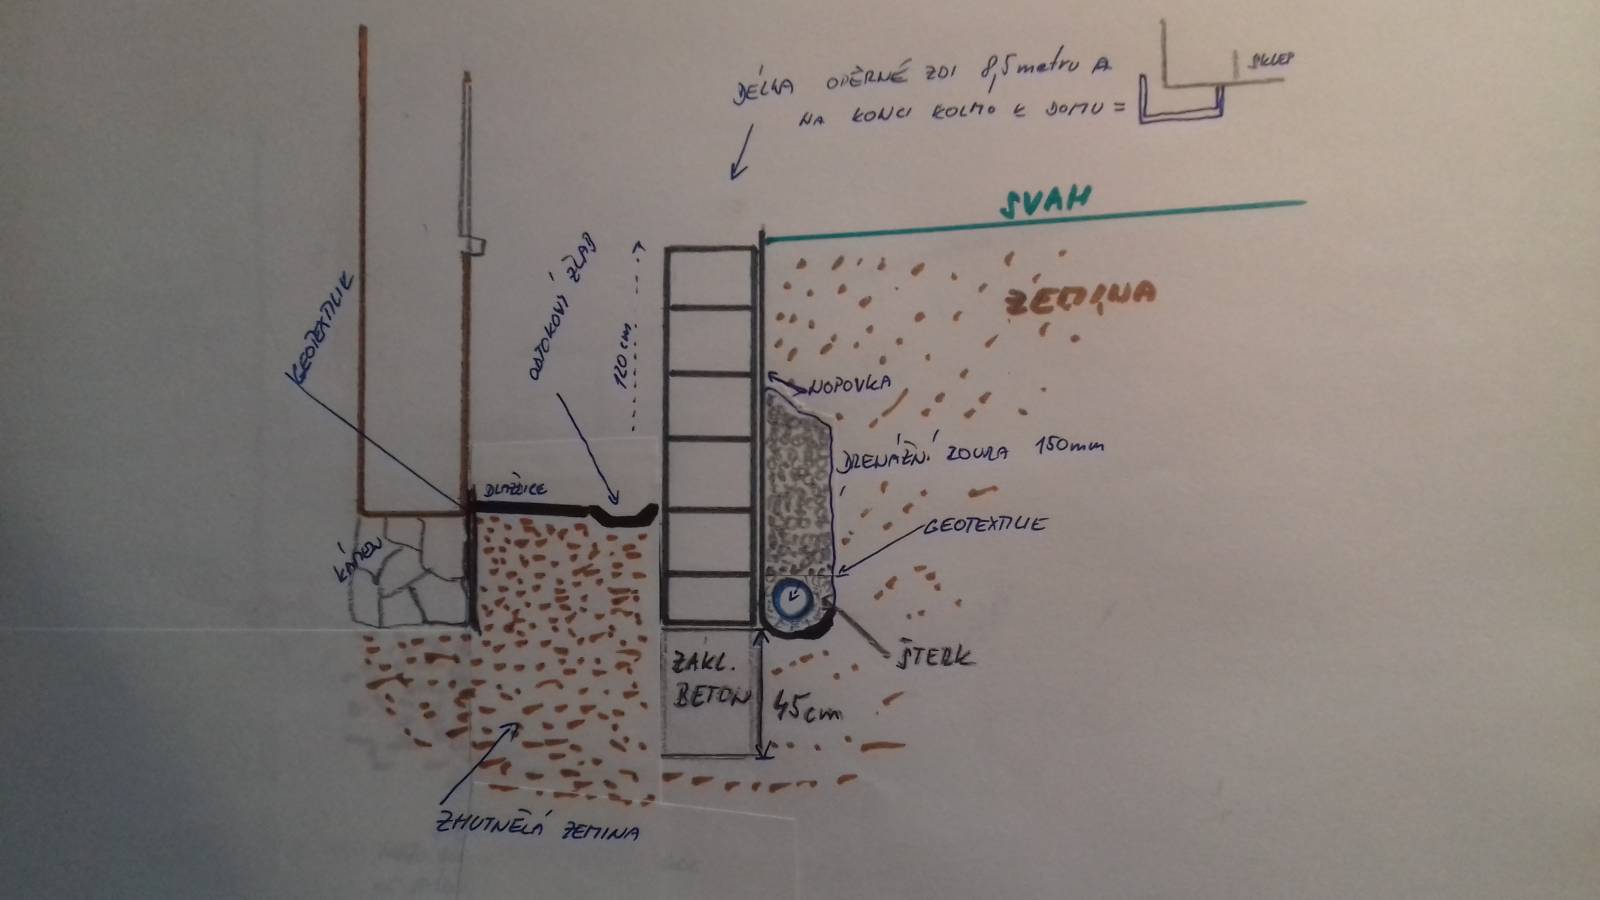 DÉLKA OPĚRNÉ ZDI 8,5 metru A
NA KONCI KOLMO K DOMU =
SKLEP
SVAH
ZEMINA
GEOTEXTILIE
ODTOKOVÝ ŽLAB
120 cm
NOPOVKA
DRENÁŽNÍ ROURA 150mm
DLAŽDICE
GEOTEXTILIE
KÁMEN
ŠTERK
ZÁKL.
BETON
45cm
ZHUTNĚLÁ ZEMINA